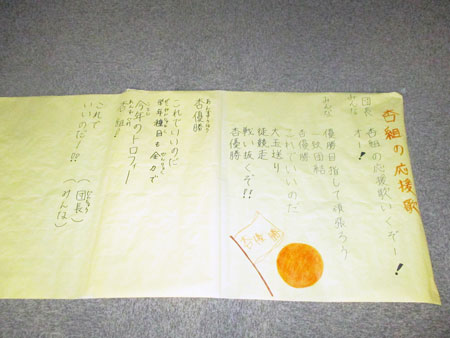 杏組の応援歌
団長 杏組の応援歌いくぞー！
みんな オー！
みんな 優勝目指して頑張ろう
一致団結
杏優勝
これでいいのだ
大玉送り
徒競走
戦い抜くぞ!!
杏優勝
杏優勝
これでいいのだ
学年種目も全力で
今年のトロフィー
杏組！
これで （団長）
いいのだー!! （みんな）